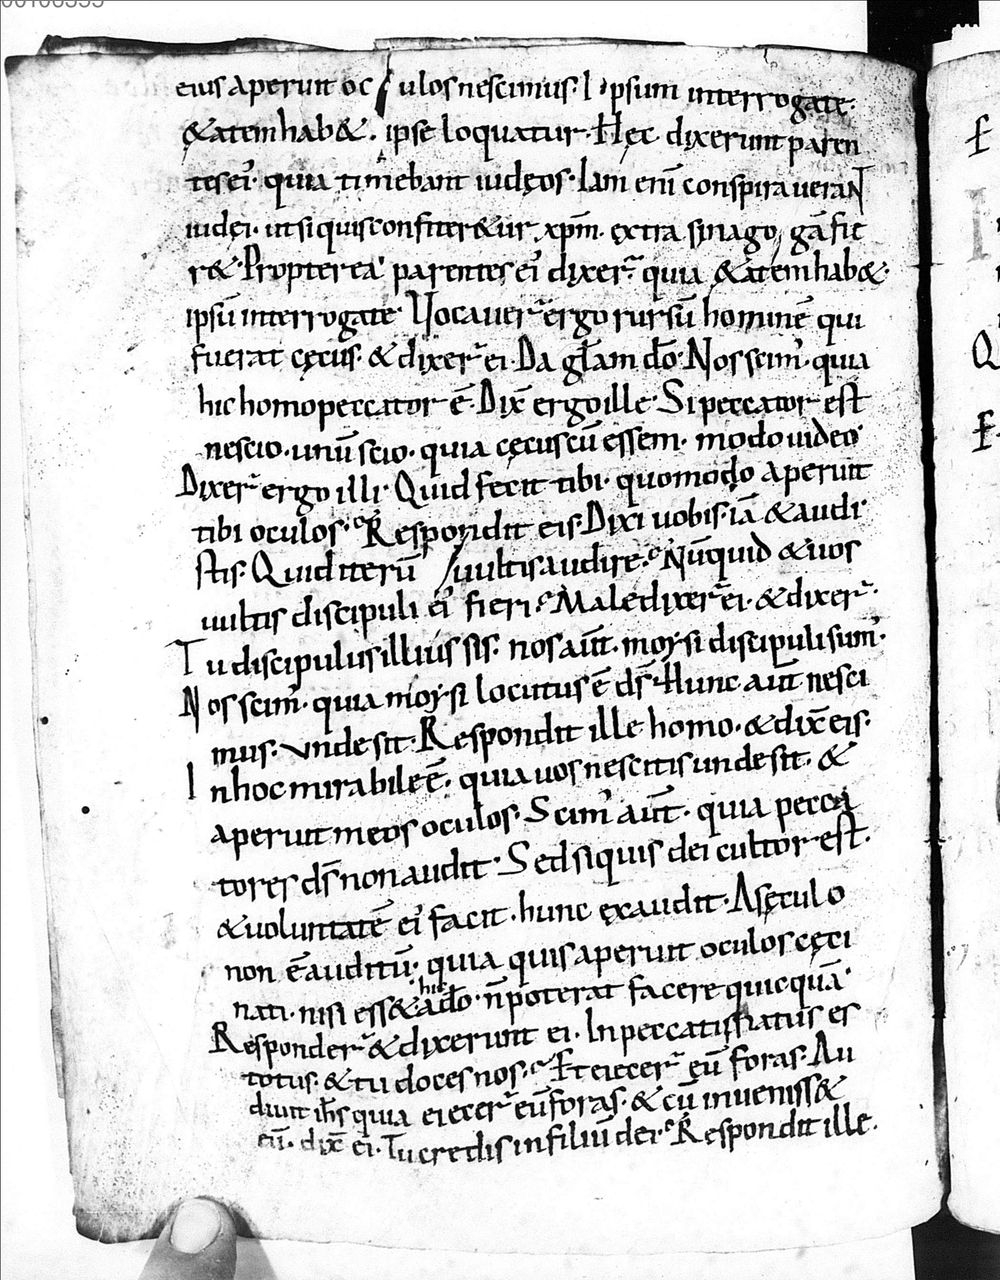 eius aperuit oculos nescimus. Ipsum interrogate.
&atem hab&. ipse loquatur. Hęc dixerunt paren
tes ei᾽. quia timebant iudęos. Iam eni̅ conspirauerant
iudei. ut si quis confiter&ur xp̅m. extra sinagoga̅ fie
r&. Propterea parentes ei᾽ dixer̅ quia &atem hab&.
ipsu̅ interrogate. Vocauer̅ ergo rursu̅ homine̅ qui
fuerat cęcus. & dixer̅ ei. Da gl̅am d̅o. Nos scim᾽. quia
hic homo peccator e̅. Dix̅ ergo ille. Si peccator est
nescio. unu̅ scio. quia cęcus cu̅ essem. modo uideo.
Dixer̅ ergo illi. Quid fecit tibi. quomodo aperuit
tibi oculos. Respondit eis. Dixi uobis. ia̅ & audi
stis. Quid iteru̅ uultis audire. Nu̅quid & uos
uultis discipuli ei᾽ fieri. Maledixer̅ ei. & dixer̅.
Tu discipulus illius sis. nos au̅t. moysi discipuli sum᾽.
Nos scim᾽. quia moysi locutus e̅ d̅s. Hunc au̅t nesci
mus. unde sit. Respondit ille homo. & dix̅ eis.
In hoc mirabile e̅. quia uos nescitis unde sit. &
aperuit meos oculos. Scim᾽ au̅t. quia pecca
tores d̅s non audit. Sed si quis dei cultor est.
& uoluntate̅ ei᾽ facit. hunc ęxaudit. A sęculo
non e̅ auditu̅. quia quis aperuit oculos cęci
nati. nisi ess& hic a d̅o. n̅ poterat facere quicqua̅.
Responder̅ & dixerunt ei. In peccatis natus es
totus. & tu doces nos. Et eiecer̅ eu̅ foras. Au
diuit ih̅s quia eiecer̅ eu̅ foras. & cu̅ inueniss&
eu̅. dix̅ ei. Tu credis in filiu̅ dei. Respondit ille.